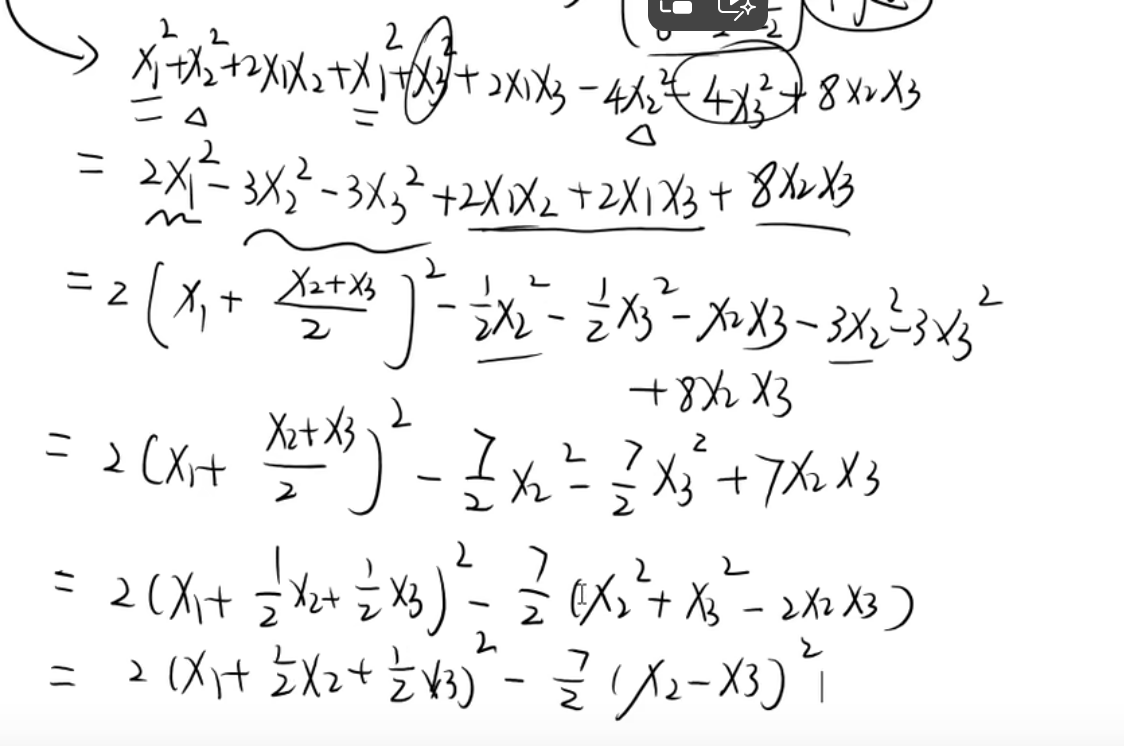 x₁²+x₂²+2x₁x₂+x₁²+x₃²+2x₁x₃-4x₂²-4x₃²+8x₂x₃
= 2x₁²-3x₂²-3x₃²+2x₁x₂+2x₁x₃+8x₂x₃
= 2(x₁+(x₂+x₃)/2)²-1/2x₂²-1/2x₃²-x₂x₃-3x₂²-3x₃²
+8x₂x₃
= 2(x₁+(x₂+x₃)/2)²-7/2x₂²-7/2x₃²+7x₂x₃
= 2(x₁+1/2x₂+1/2x₃)²-7/2(x₂²+x₃²-2x₂x₃)
= 2(x₁+1/2x₂+1/2x₃)²-7/2(x₂-x₃)²